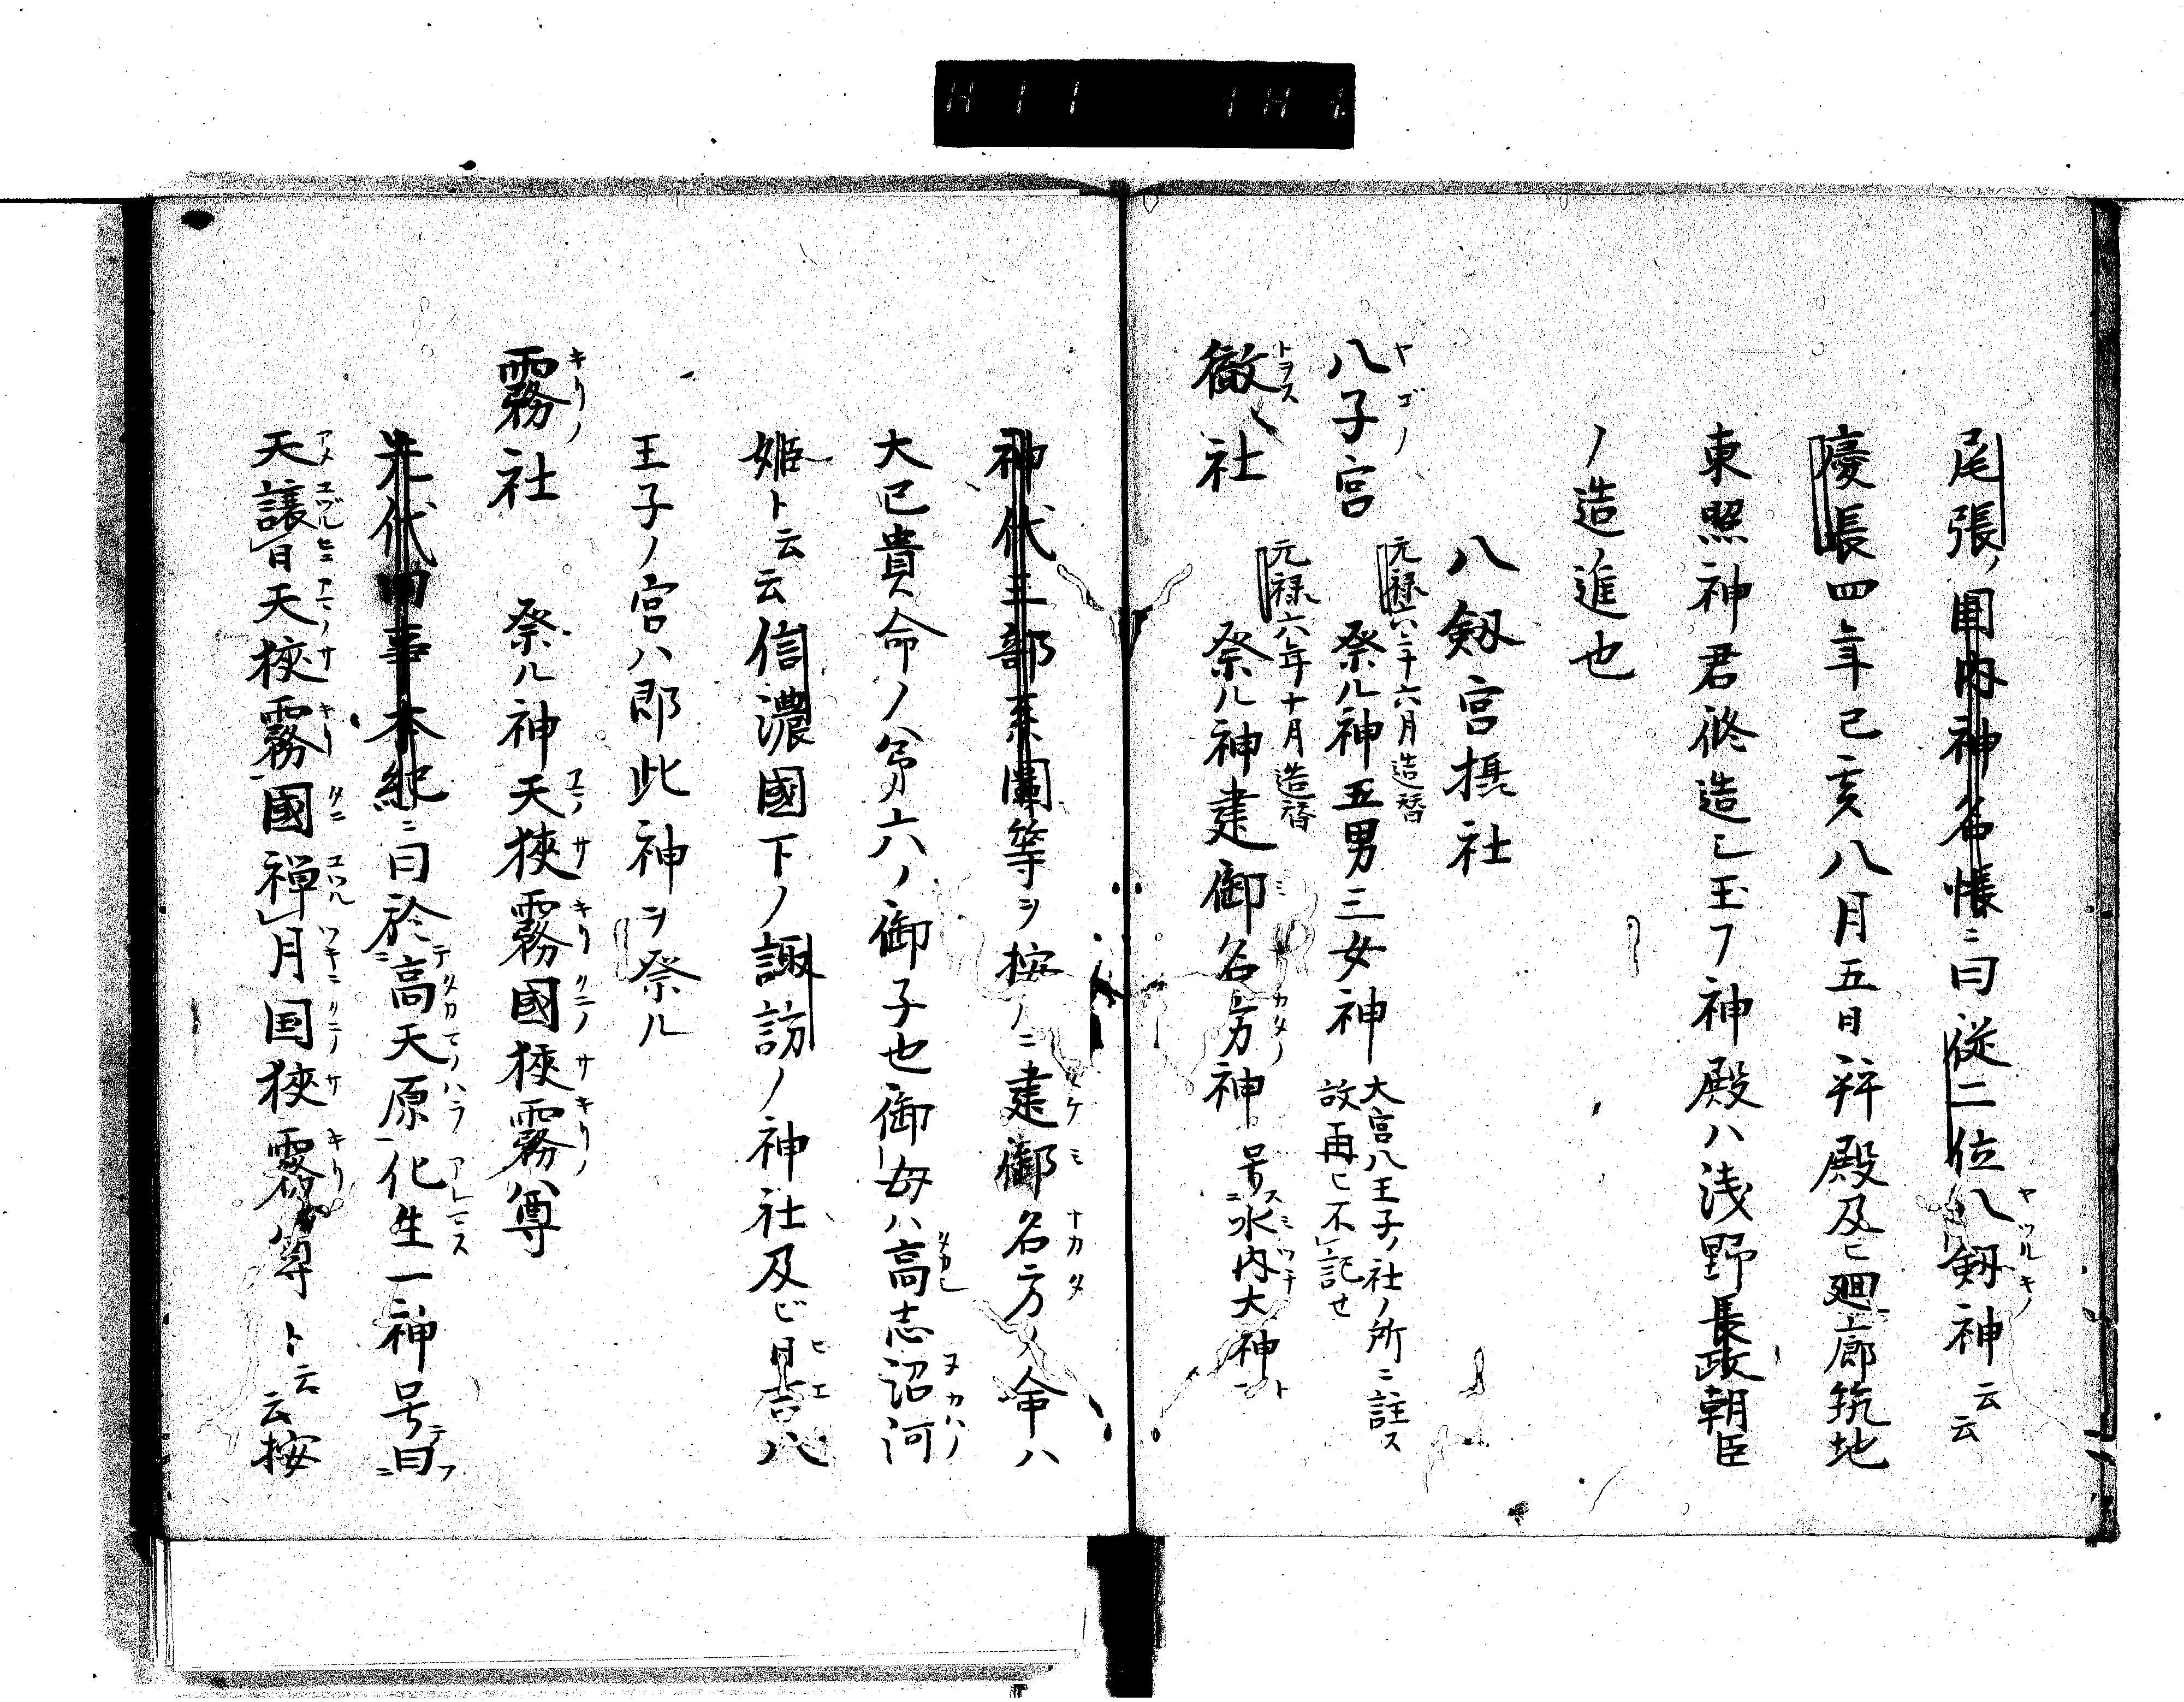 尾張ノ国内神名帳ニ曰従二位八剱神云云
慶長四年己亥八月五日拜殿及ヒ廻廊筑地
東照神君修造シ玉フ神殿ハ浅野長政朝臣
ノ造進也
八剱宮摂社
八子宮 元禄六年十六月造替 祭ル神五男三女神 大宮八王子ノ社ノ所ニ註ス
故再ヒ不記セ
徹社 元禄六年十月造替 祭ル神建御名方神 号ニ水内大神ト
神代王部系圖等ヲ按ノニ建御名方ノ命ハ
大已貴命ノ第六ノ御子也御母ハ高志沼河
姫ト云云信濃國下ノ諏訪ノ神社及ビ日吉八
王子ノ宮ハ即此神ヲ祭ル
霧社 祭ル神天狹霧國狹霧尊
先代旧事本紀ニ曰於高天原化生一神号曰
天譲日天狹霧國禅月国狹霧尊ト云云按